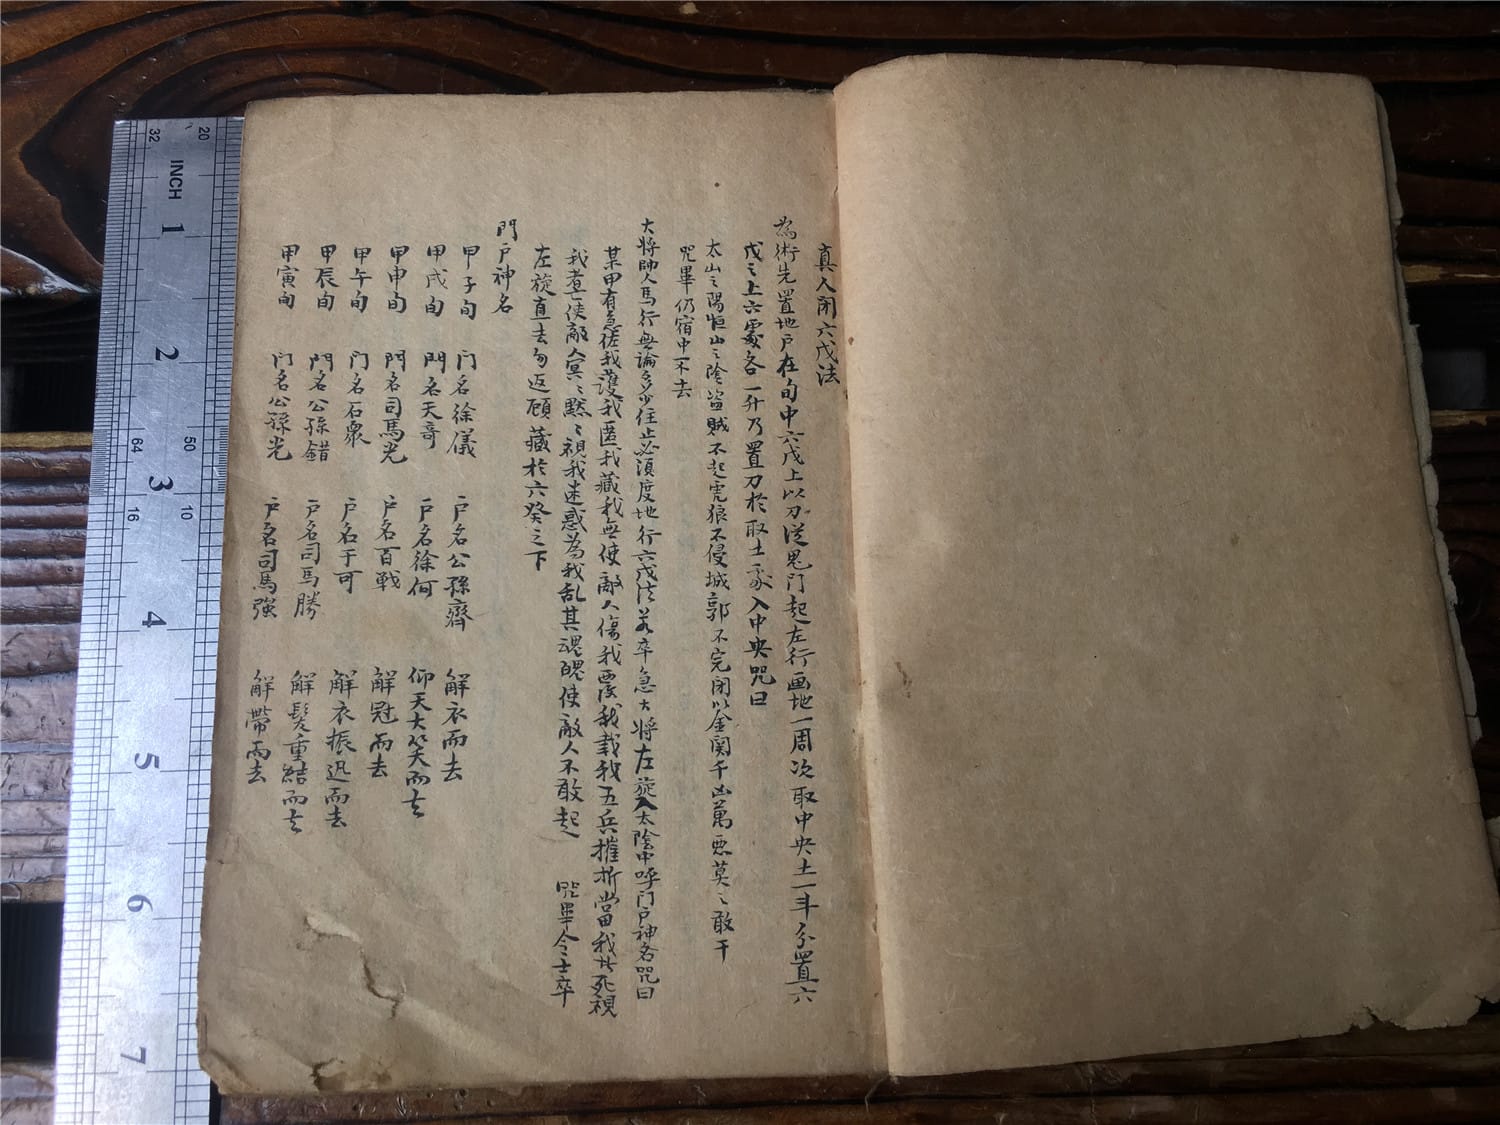 真人閉六戊法
為術先置地戶在旬中六戊上以刀從鬼門起左行画地一周次取中央土一斗分置六
戊之上六處各一升乃置刀於取土處入中央咒曰
太山之陽恒山之陰盜賊不起虎狼不侵城郭不完閉以金関千凶萬惡莫之敢干
咒畢仍宿中不去
大將帥人馬行無論多少住止必須度地行六戊法若卒急大將左旋入太陰中呼门户神名咒曰
某甲有急徒我護我匿我藏我無使敵人傷我覆我載我五兵摧折當我此死視
我者使敵人冥冥默默視我迷惑為我乱其魂魄使敵人不敢起 咒畢令士卒
左旋直去勿返顧藏於六癸之下
門户神名
甲子旬 门名徐儀 户名公孫齊 解衣而去
甲戌旬 門名天奇 户名徐何 仰天大笑而去
甲申旬 門名司馬光 户名百戰 解冠而去
甲午旬 门名石衆 户名于可 解衣振迅而去
甲辰旬 門名公孫錯 户名司馬勝 解髮重結而去
甲寅旬 门名公孫光 户名司馬強 解帶而去
INCH
1
2
3
4
5
6
7
32
20
64
50
16
10